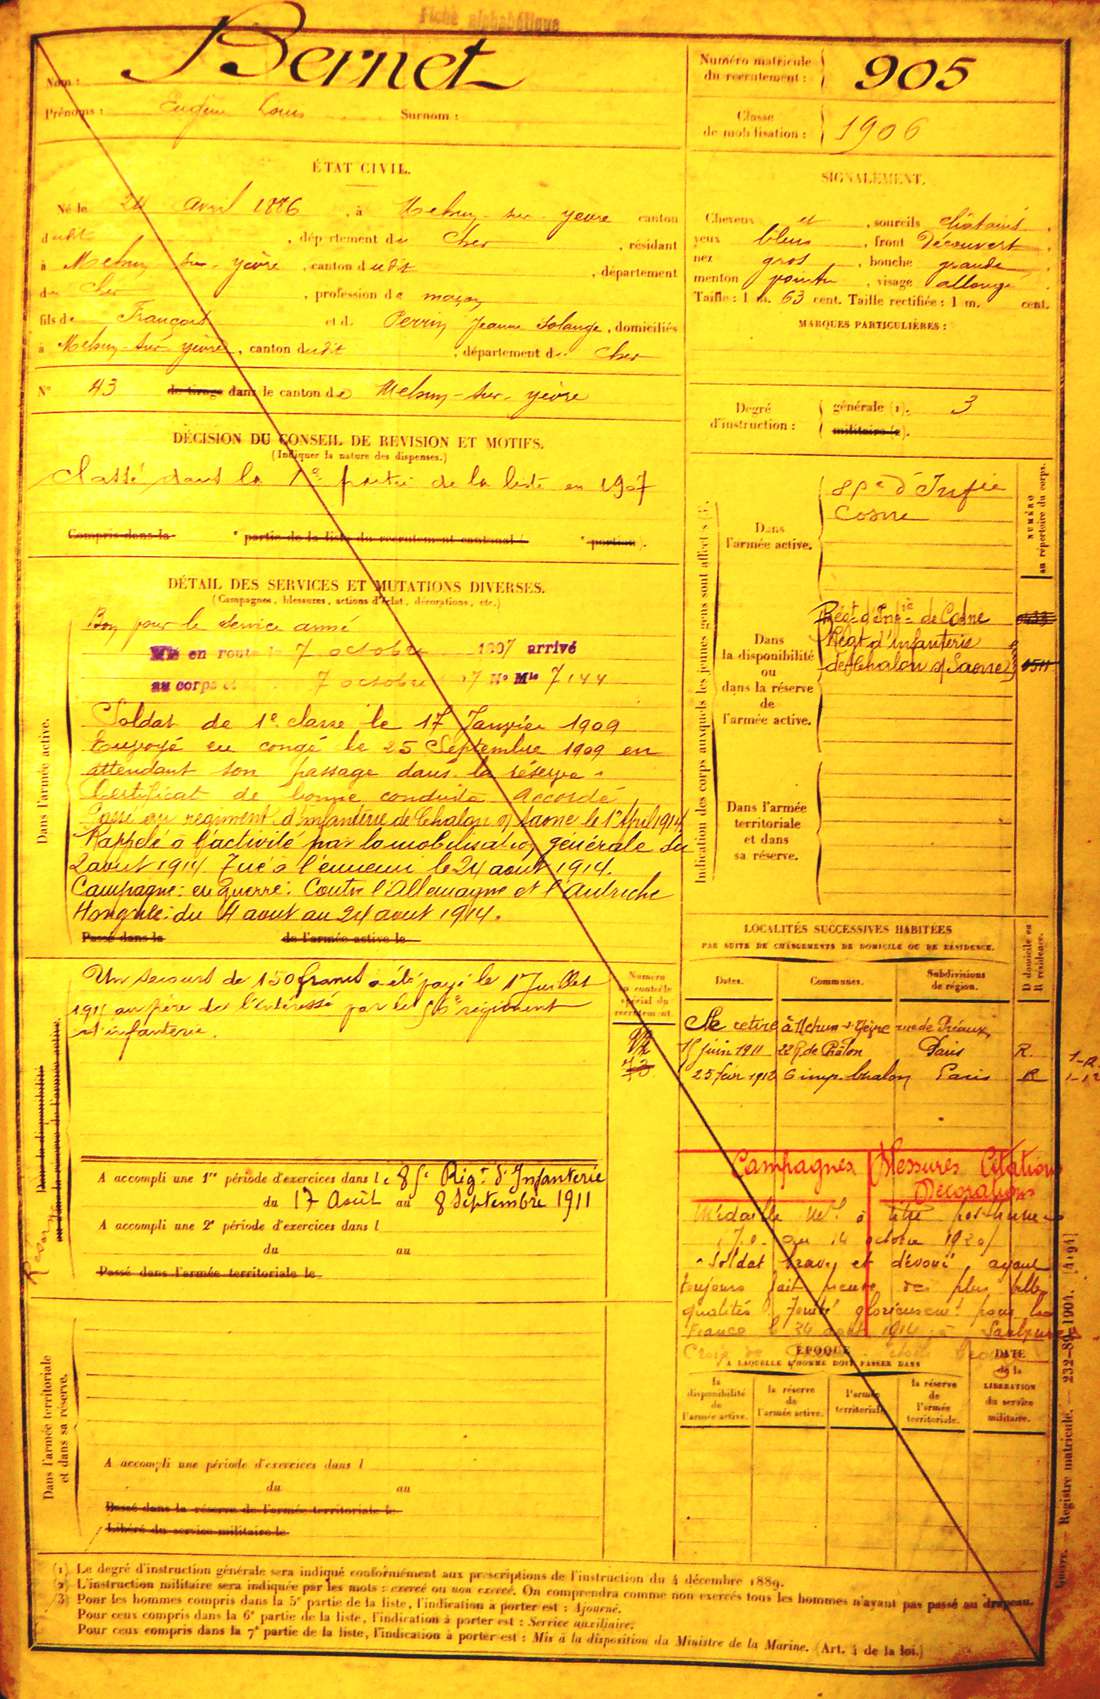 Fiche alphabétique
Nom : Bernet
Prénoms : Eugène Louis Surnom :
Numéro matricule du recrutement : 905
Classe de mobilisation : 1906
ÉTAT CIVIL.
Né le 24 avril 1886, à Mehun-sur-yèvre canton
dudit, département du Cher, résidant
à Mehun-sur-yèvre, canton dudit, département
du Cher, profession de maçon
fils de François et de Perrin Jeanne Solange, domiciliés
à Mehun-sur-yèvre, canton dudit, département du Cher
N° 43 de tirage dans le canton de Mehun-sur-yèvre
SIGNALEMENT.
Cheveux et, sourcils châtains,
yeux bleus, front Découvert,
nez gros, bouche grande,
menton pointu, visage allongé
Taille : 1 m. 63 cent. Taille rectifiée : 1 m. cent.
MARQUES PARTICULIÈRES :
Degré d'instruction :
générale (1). 3
militaire (2).
DÉCISION DU CONSEIL DE REVISION ET MOTIFS.
(Indiquer la nature des dispenses.)
Classé dans la 1e partie de la liste en 1907
Compris dans la e partie de la liste du recrutement cantonal ( e portion ).
DÉTAIL DES SERVICES ET MUTATIONS DIVERSES.
(Campagnes, blessures, actions d'éclat, décorations, etc.)
Dans l'armée active.
Bon pour le service armé
Mis en route le 7 octobre 1907 arrivé
au corps 7 octobre N° Mle 7144
Soldat de 1e classe le 17 Janvier 1909
Envoyé en congé le 25 Septembre 1909 en
attendant son passage dans la réserve.
Certificat de bonne conduite accordé
Passé au régiment d'infanterie de Chalon s/ Saone le 1er Avril 1914
Rappelé à l'activité par la mobilisation générale du
2 aout 1914 Tué à l'ennemi le 24 aout 1914.
Campagne : en guerre : Contre l'Allemagne et l'Autriche
Hongrie : du 4 aout au 24 aout 1914.
Passé dans la de l'armée active le
Indication des corps auxquels les jeunes gens sont affectés (3).
NUMÉRO au répertoire du corps.
Dans l'armée active.
85e d'Infie
Cosne
Dans la disponibilité ou dans la réserve de l'armée active.
Régt d'Infie de Cosne
Régt d'infanterie
de Chalon s/ Saone
Dans l'armée territoriale et dans sa réserve.
LOCALITÉS SUCCESSIVES HABITÉES
PAR SUITE DE CHANGEMENTS DE DOMICILE OU DE RÉSIDENCE.
Dates. Communes. Subdivisions de région. D domicile ou R résidence.
Se retire à Mehun s. Yèvre rue de Préaux
15 juin 1911 22 R. de Châlon Paris R.
25 fév 1912 6 imp. Chalon Paris R
Dans la disponibilité
ou dans la réserve de l'armée active
Un secours de 150 francs a été payé le 17 Juillet
1915 au père de l'intéressé par le 56e régiment
d'infanterie.
Numéro au contrôle spécial du recrutement.
A accompli une 1re période d'exercices dans le 85e Régt d'Infanterie
du 17 Août au 8 Septembre 1911
A accompli une 2e période d'exercices dans l
du au
Passé dans l'armée territoriale le
Campagnes Blessures Citations
Décorations
Médaille Mre à titre posthume
J.O. du 14 octobre 1920
"Soldat brave et dévoué ayant
toujours fait preuve des plus belles
qualités. Tombé glorieusement pour la
France le 24 août 1914 à
Croix de Guerre
ÉPOQUE
A LAQUELLE L'HOMME DOIT PASSER DANS
la disponibilité de l'armée active.
la réserve de l'armée active.
l'armée territoriale.
la réserve de l'armée territoriale.
DATE de la LIBÉRATION du service militaire.
Dans l'armée territoriale et dans sa réserve.
A accompli une période d'exercices dans l
du au
Passé dans la réserve de l'armée territoriale le
Libéré du service militaire le
(1) Le degré d'instruction générale sera indiqué conformément aux prescriptions de l'instruction du 4 décembre 1889.
(2) L'instruction militaire sera indiquée par les mots : exercé ou non exercé. On comprendra comme non exercés tous les hommes n'ayant pas passé au drapeau.
(3) Pour les hommes compris dans la 5e partie de la liste, l'indication à porter est : Ajourné.
Pour ceux compris dans la 6e partie de la liste, l'indication à porter est : Service auxiliaire.
Pour ceux compris dans la 7e partie de la liste, l'indication à porter est : Mis à la disposition du Ministre de la Marine. (Art. 4 de la loi.)
Guerre. — Registre matricule. — 232-89-1904. [4194]